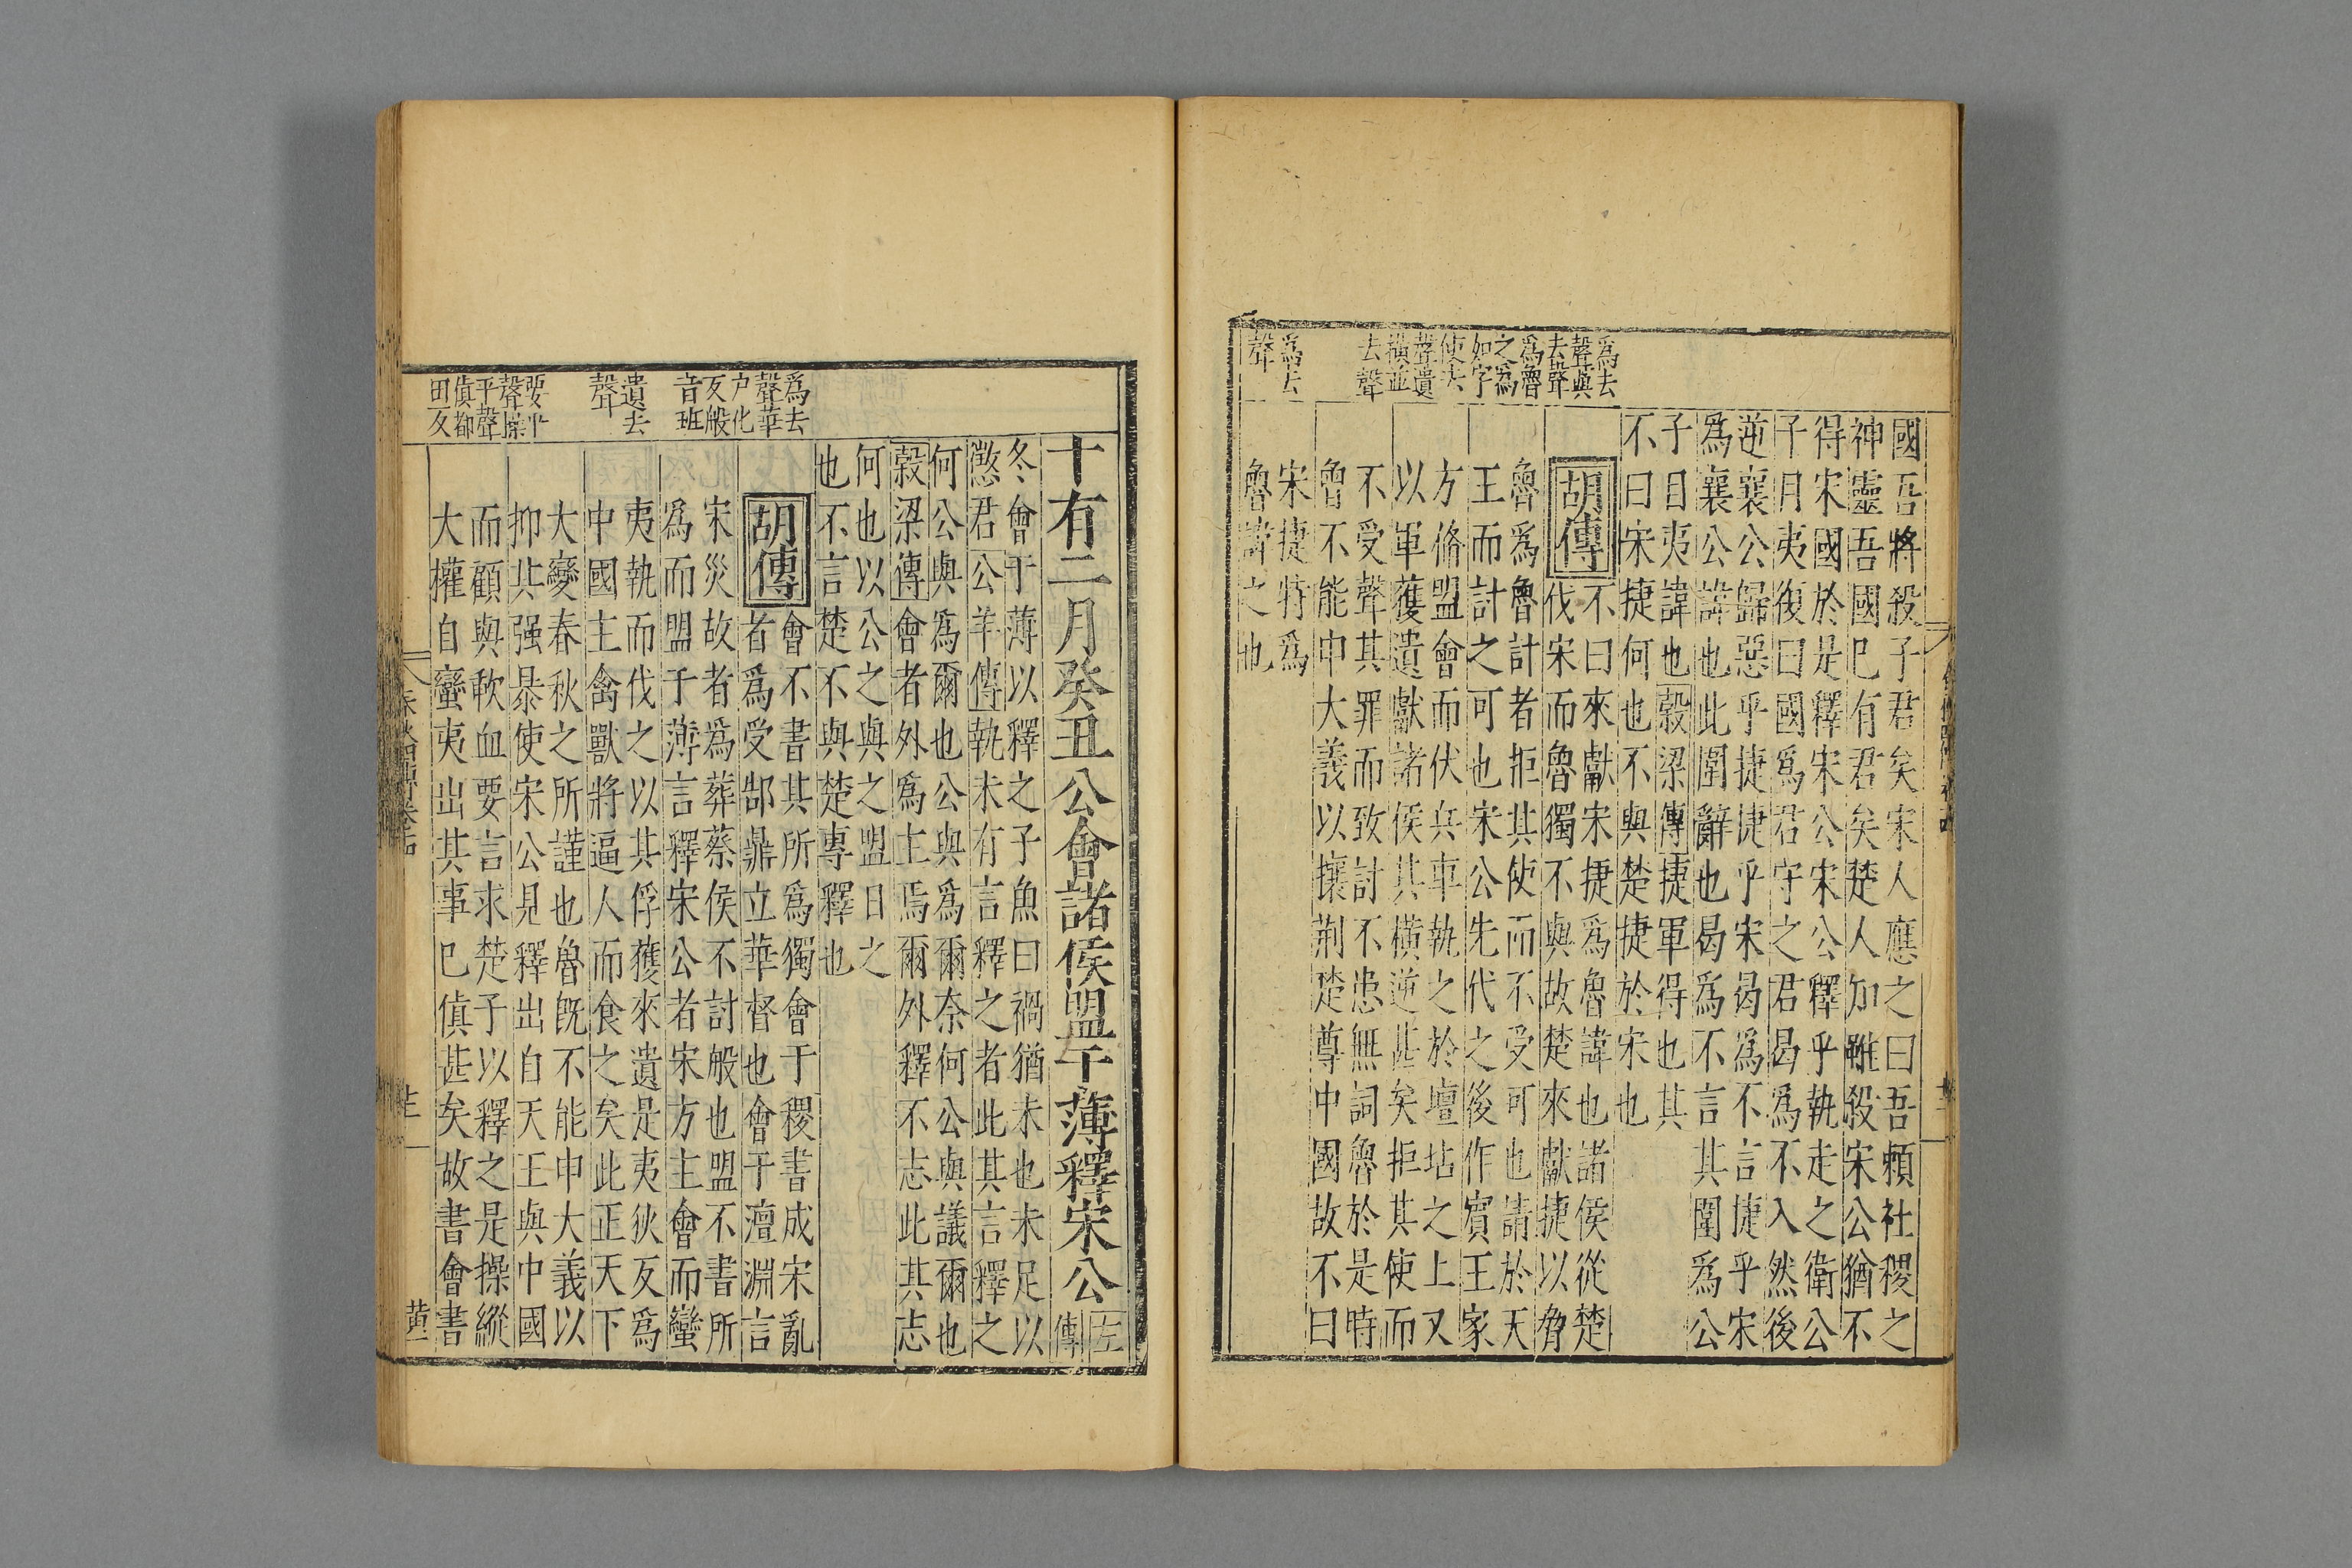 國吾將殺子君矣宋人應之曰吾賴社稷之
神靈吾國已有君矣楚人知雖殺宋公猶不
得宋國於是釋宋公宋公釋乎執走之衛公
子目夷復曰國爲君守之君曷爲不入然後
逆襄公歸惡乎捷捷乎宋曷爲不言捷乎宋
爲襄公諱也此圍辭也曷爲不言其圍爲公
子目夷諱也穀梁傳捷軍得也其
不曰宋捷何也不與楚捷於宋也
胡傳
不曰來獻宋捷爲魯諱也諸侯從楚
伐宋而魯獨不與故楚來獻捷以脅
魯爲魯計者拒其使而不受可也請於天
王而計之可也宋公先代之後作賓王家
方脩盟會而伏兵車執之於壇坫之上又
以軍獲遺獻諸侯其橫逆甚矣拒其使而
不受聲其罪而致討不患無詞魯於是時
曾不能申大義以攘荆楚尊中國故不曰
宋捷特爲
魯諱之也
爲去
聲與
去聲
爲魯
之爲
如字
使去
聲遺
橫並
去聲
爲去
聲
十有二月癸丑公會諸侯盟于薄釋宋公
左
傳
冬會于薄以釋之子魚曰禍猶未也未足以
懲君公羊傳執未有言釋之者此其言釋之
何公與爲爾也公與爲爾奈何公與議爾也
穀梁傳會者外爲主焉爾外釋不志此其志
何也以公之與之盟日之
也不言楚不與楚專釋也
胡傳
會不書其所爲獨會于稷書成宋亂
者爲受郜鼎立華督也會于澶淵言
宋災故者爲葬蔡侯不討般也盟不書所
爲而盟于薄言釋宋公者宋方主會而蠻
夷執而伐之以其俘獲來遺是夷狄反爲
中國主禽獸將逼人而食之矣此正天下
大變春秋之所謹也魯旣不能申大義以
抑其强暴使宋公見釋出自天王與中國
而顧與歃血要言求楚子以釋之是操縱
大權自蠻夷出其事已傎甚矣故書會書
爲去
聲華
户化
反般
音班
遺去
聲
要平
聲操
平聲
傎都
田反
黄